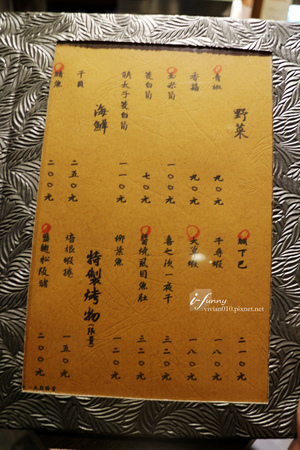 野菜
青椒 九〇元
香菇 九〇元
玉米筍 一〇〇元
筊白筍 七〇元
明太子筊白筍 一一〇元
海鮮
干貝 二五〇元
鯖魚 二〇〇元
下巴 二一〇元
蝦 一八〇元
大 蝦 一八〇元
喜之次一夜干 三二〇元
醬燒虱目魚肚 三二〇元
柳葉魚 一二〇元
特製烤物(限量)
培根蝦捲 一五〇元
鹽麴松阪豬 二〇〇元
i-funny
vivian010.pixnet.net